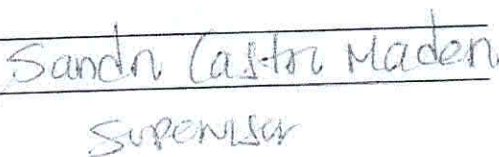 Sandra Castro Maden
Supervisor